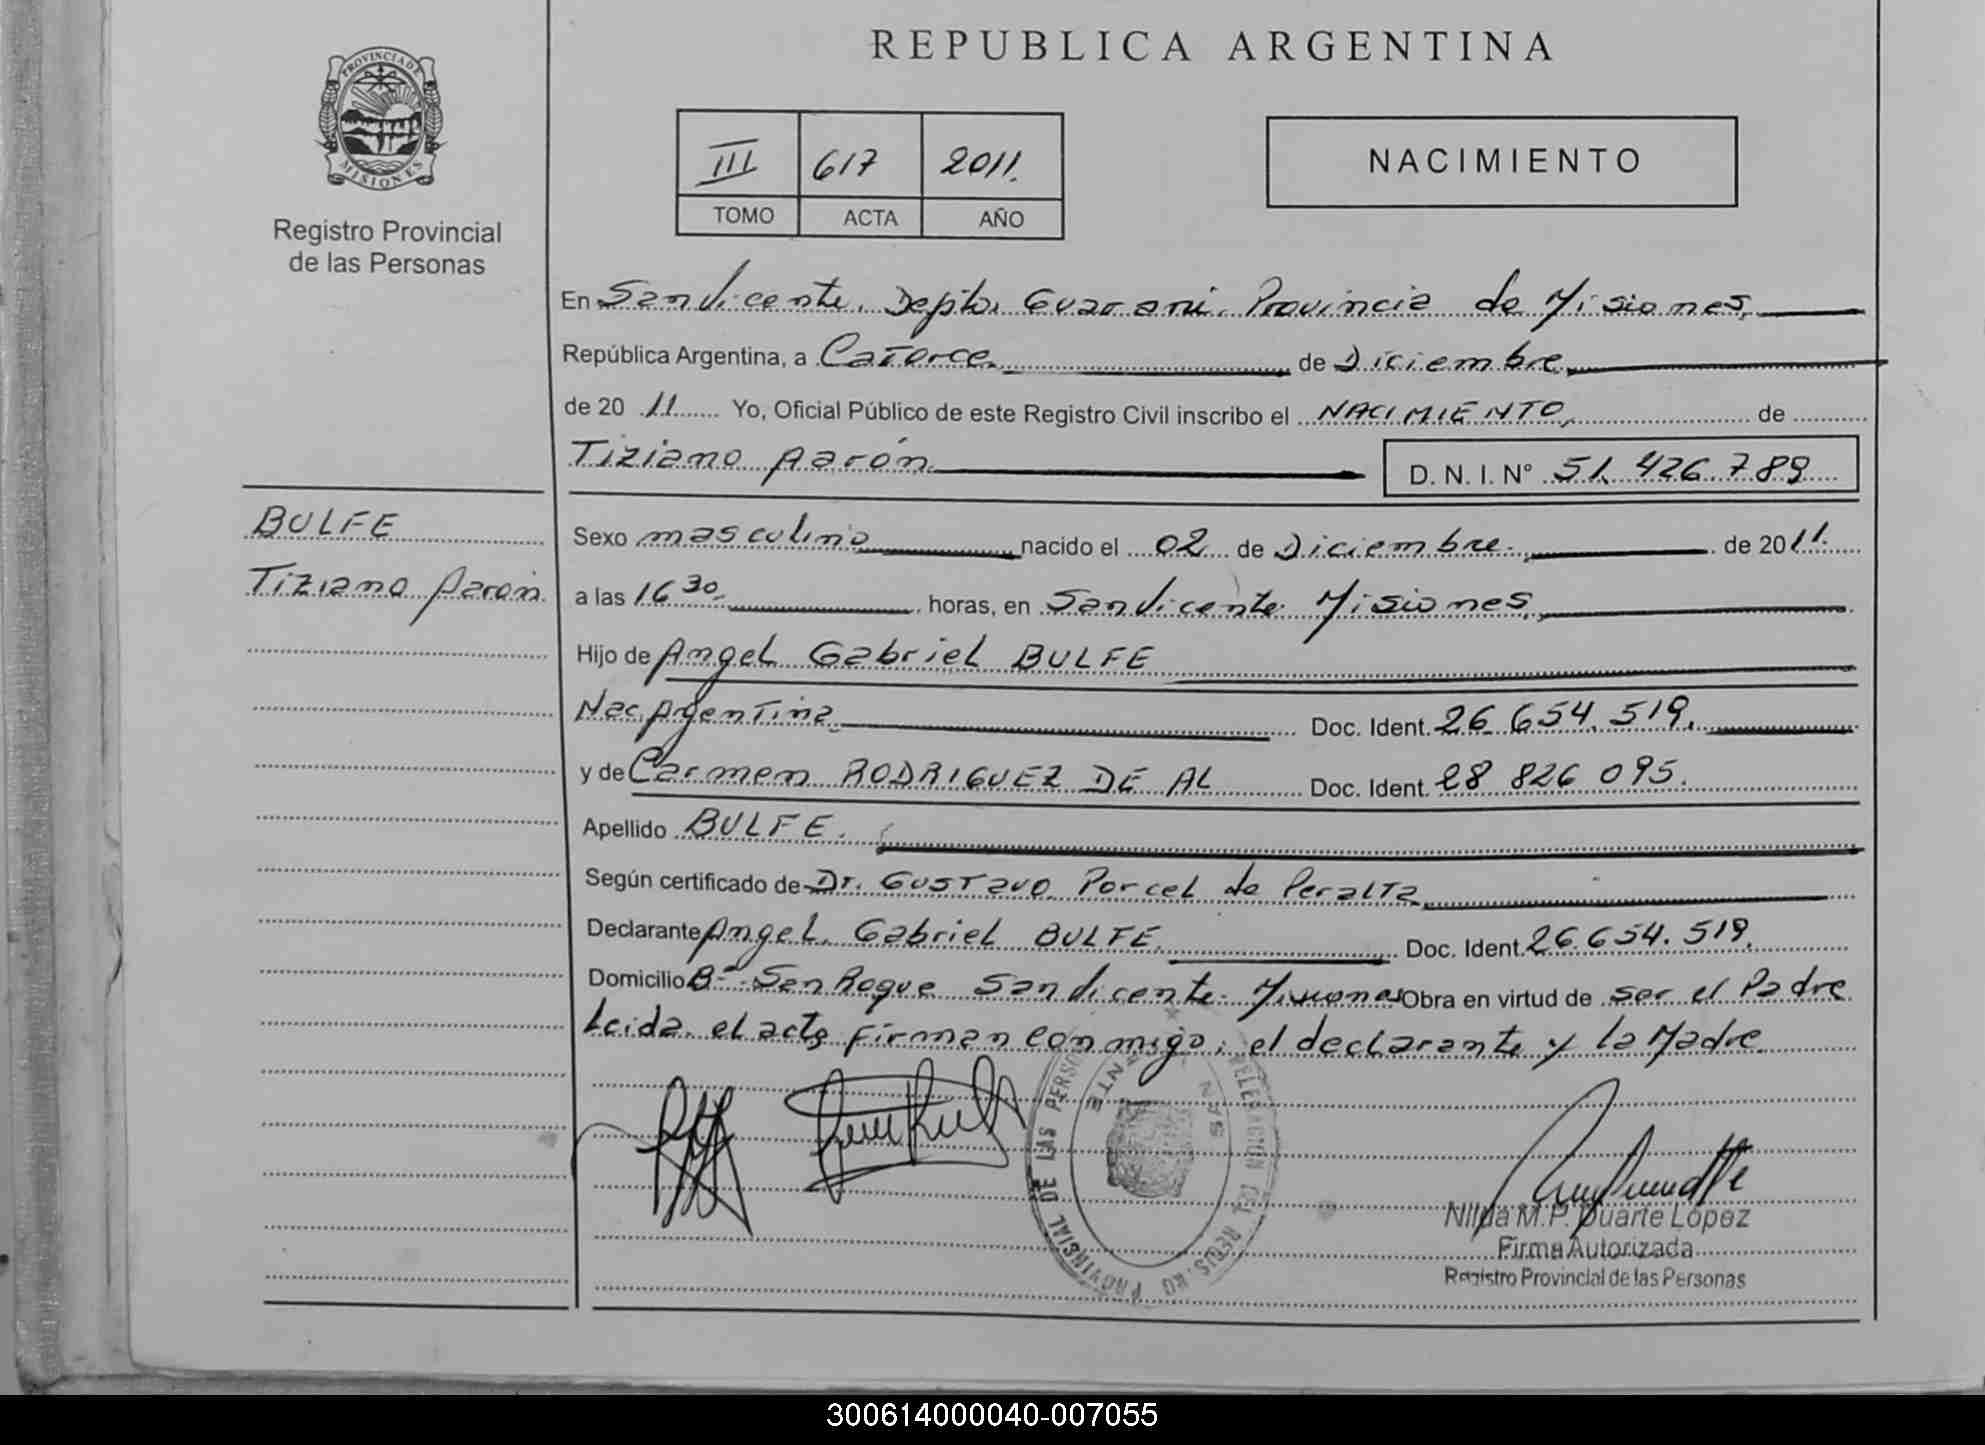 REPUBLICA ARGENTINA
PROVINCIA DE MISIONES
Registro Provincial
de las Personas
III 617 2011.
TOMO ACTA AÑO
NACIMIENTO
En San Vicente. Depto. Guarani. Provincia de Misiones,
República Argentina, a Catorce. de Diciembre.
de 20 11 Yo, Oficial Público de este Registro Civil inscribo el NACIMIENTO, de
Tiziano Aarón. D. N. I. N° 51.426.789
BULFE
Tiziano Aarón.
Sexo masculino nacido el 02 de Diciembre. de 2011.
a las 16 30. horas, en San Vicente. Misiones,
Hijo de Angel Gabriel BULFE
Nac. Argentina. Doc. Ident. 26.654.519.
y de Carmen RODRIGUEZ DE AL Doc. Ident. 28 826 095.
Apellido BULFE.
Según certificado de Dr. Gustavo Porcel de Peralta
Declarante Angel Gabriel BULFE. Doc. Ident. 26.654.519.
Domicilio B° San Roque San Vicente. Misiones Obra en virtud de ser el Padre
Leida el acta firman conmigo, el declarante y la Madre.
Nilda M.P. Duarte López
Firma Autorizada
Registro Provincial de las Personas
300614000040-007055